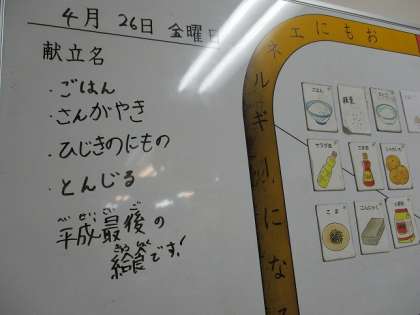 4月 26日 金曜日
献立名
・ごはん
・さんがやき
・ひじきのにもの
・とんじる
へいせいさいご
平成最後の
給食です!
おもにエネルギーにな
ごはん
サラダ油
ごま油
じゃがいも
ごま
こんにゃく